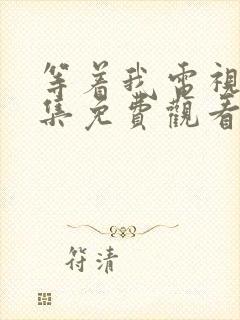 等着我電視
集免費觀看
符清